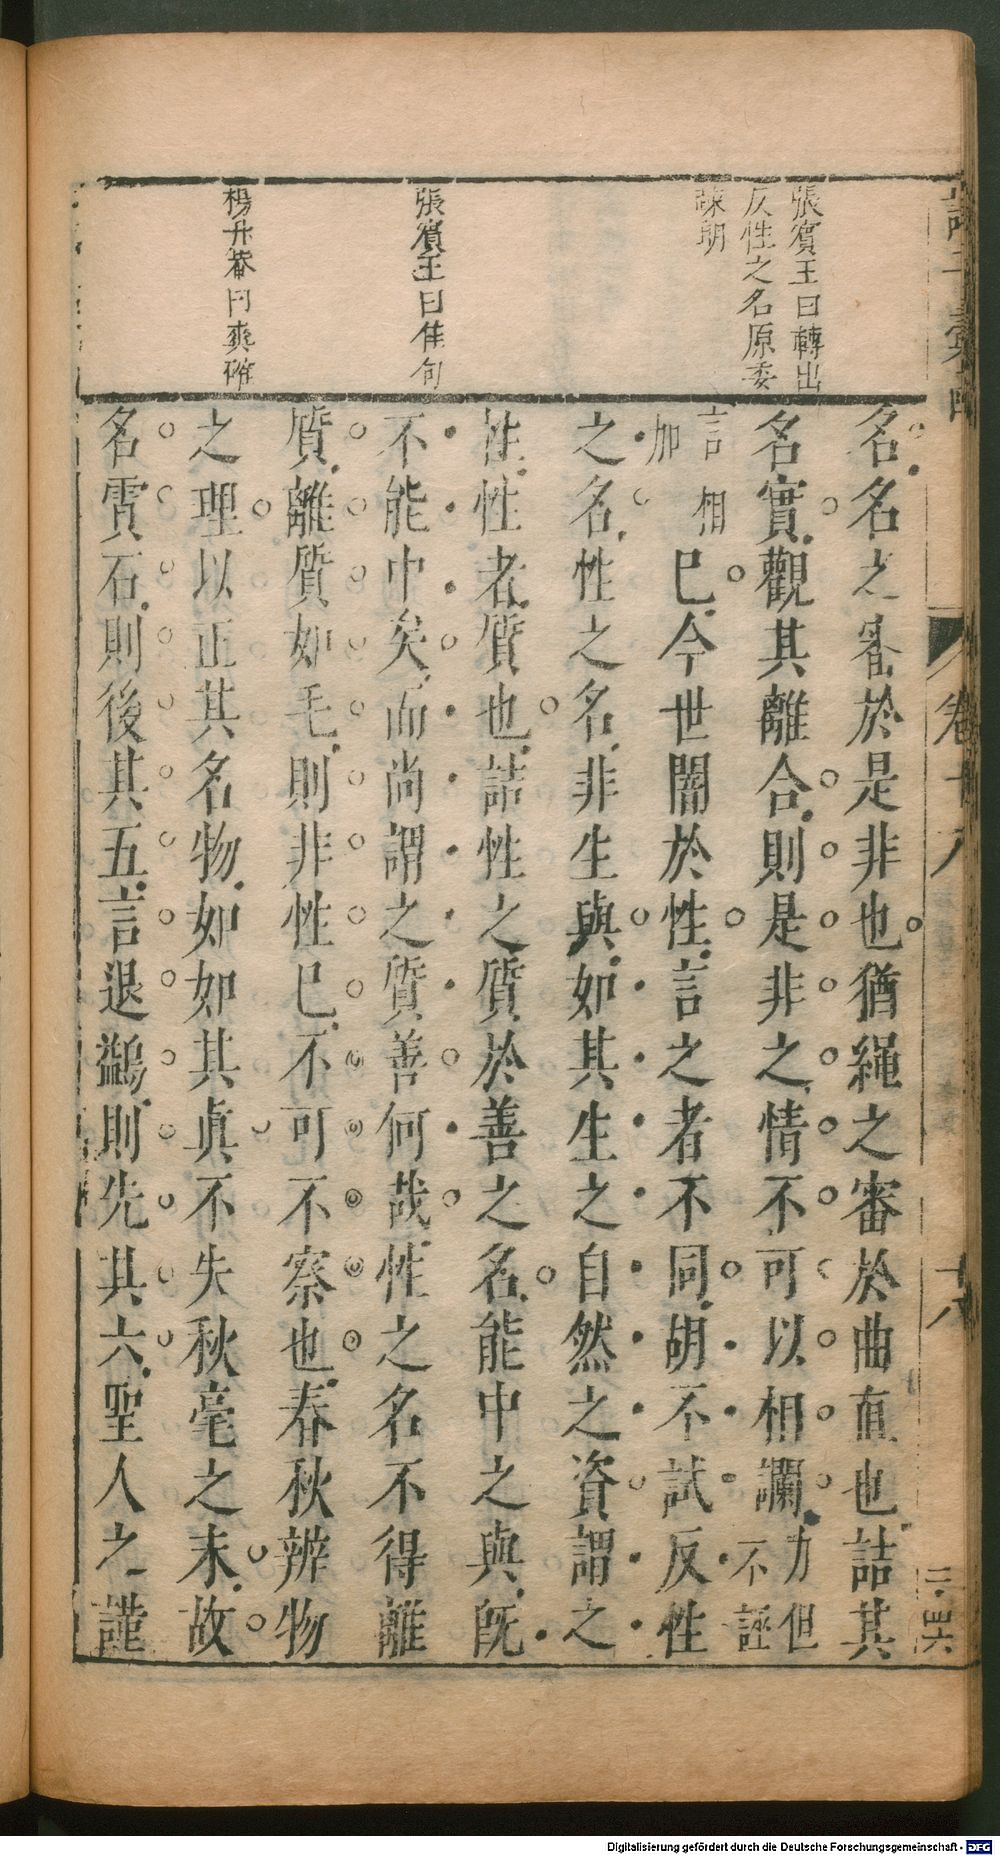 張賓王曰轉出
反性之名原委
疎朗
張賓王曰佳句
楊升菴曰爽確
名名之審於是非也猶繩之審於曲直也詰其
名實觀其離合則是非之情不可以相讕力但
不誣
言相
加
巳今世闇於性言之者不同胡不試反性
之名性之名非生與如其生之自然之資謂之
性性者質也詰性之質於善之名能中之與既
不能中矣而尚謂之質善何哉性之名不得離
質離質如毛則非性巳不可不察也春秋辨物
之理以正其名物如如其眞不失秋毫之末故
名霣石則後其五言退鷁則先其六聖人之謹
卷十八
十六
Digitalisierung gefördert durch die Deutsche Forschungsgemeinschaft - DFG